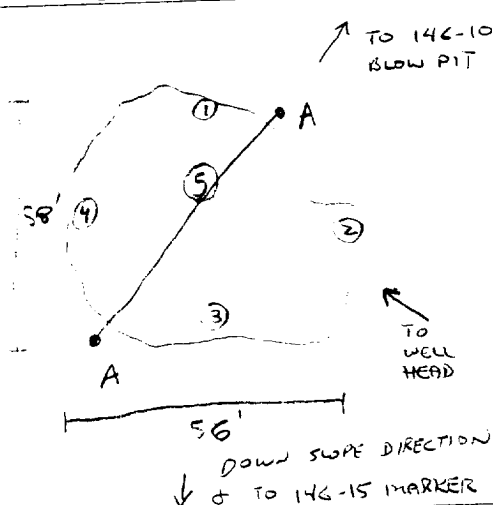 TO 146-10
BLOW PIT
①
A
⑤
58'
④
②
③
TO
WELL
HEAD
A
56'
DOWN SLOPE DIRECTION
& TO 146-15 MARKER